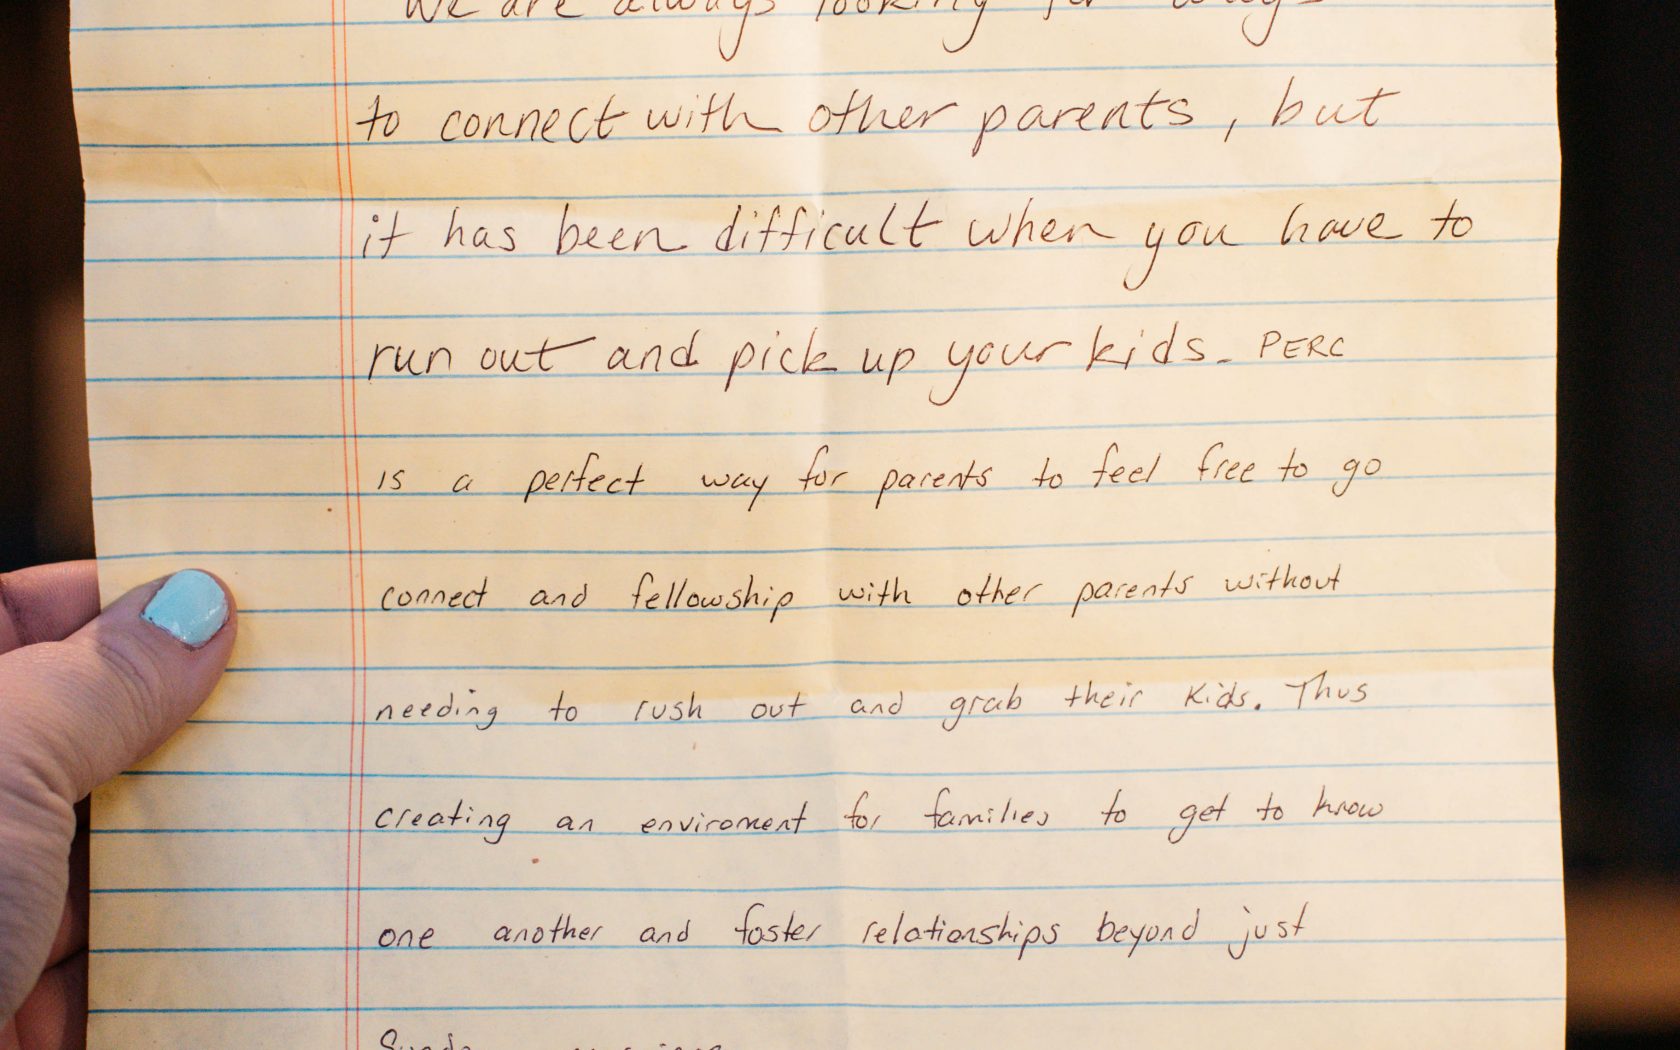 We are always looking for ways
to connect with other parents, but
it has been difficult when you have to
run out and pick up your kids. PERC
is a perfect way for parents to feel free to go
connect and fellowship with other parents without
needing to rush out and grab their kids. Thus
creating an enviroment for families to get to know
one another and foster relationships beyond just